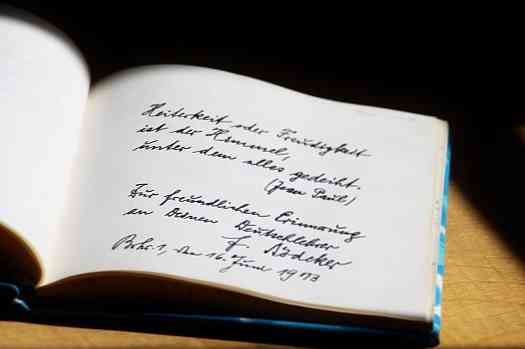 Heiterkeit oder Freudigkeit
ist der Himmel,
unter dem alles gedeiht.
(Jean Paul)
Zur freundlichen Erinnerung
an Deinen Deutschlehrer
F.
den 16. Juni 19